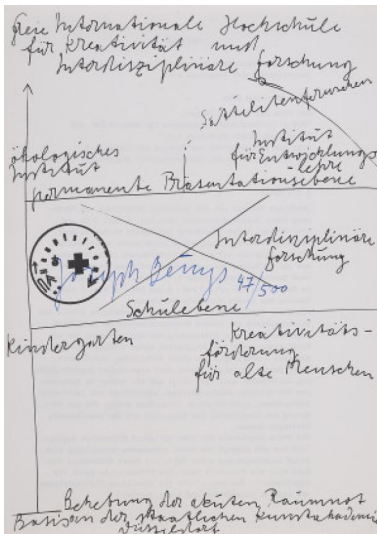 freie Internationale Hochschule
für Kreativität und
Interdisziplinäre Forschung
Satelitenfernsehen
ökologisches
Institut
Institut
für Entwicklungs
lehre
permanente Präsentationsebene
Interdisziplinäre
Forschung
Joseph Beuys 47/500
Schulebene
Kindergarten
Kreativitäts-
förderung
für alte Menschen
Behebung der akuten Raumnot
Basis an der staatlichen Kunstakademie
Düsseldorf